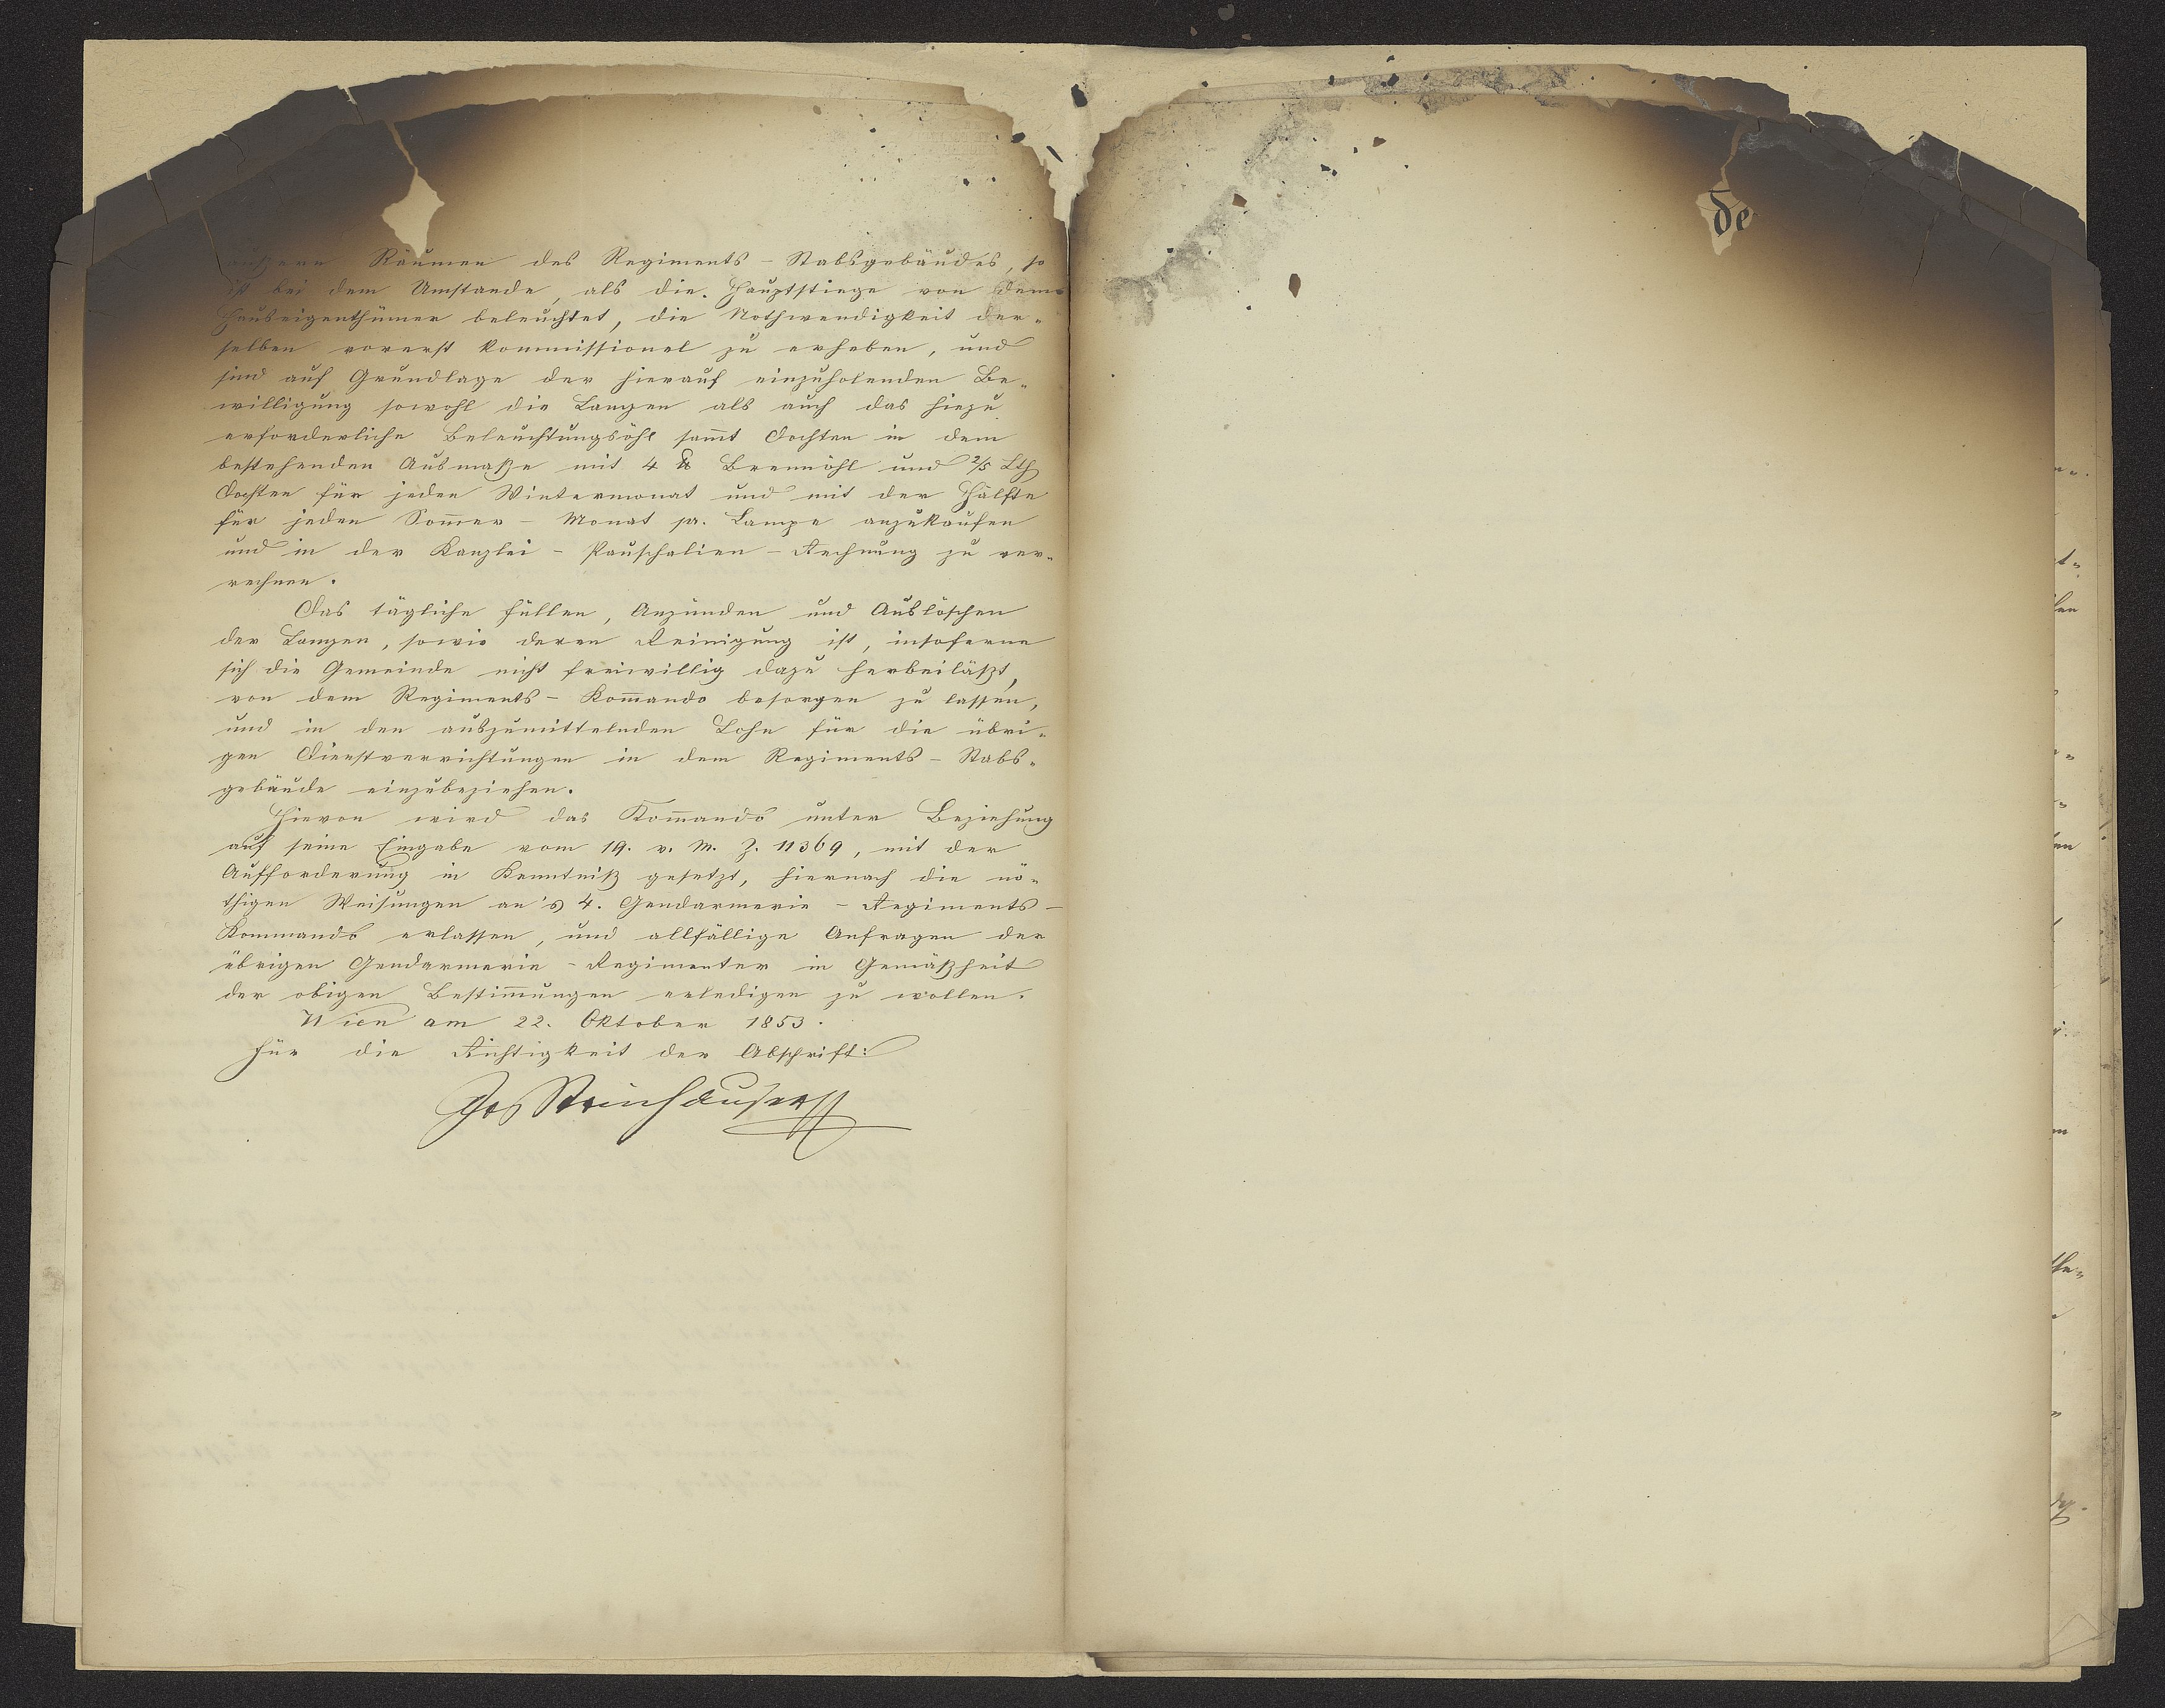 äußeren Räumen des Regiments - Stabsgebäudes, so
ist bei dem Umstande, als die Hauptstiege von dem
Hauseigenthümer beleuchtet, die Nothwendigkeit der-
selben vorerst kommissionel zu erheben, und
sind auf Grundlage der hierauf einzuholenden Be-
willigung sowohl die Lampen als auch das hiezu
erforderliche Beleuchtungsöhl sam̄t Dochten in dem
bestehenden Ausmaße mit 4 ℔ Brennöhl und 2/5 Lth
Dochten für jeden Wintermonat und mit der Hälfte
für jeden Som̄er - Monat pr. Lampe anzukaufen
und in der Kanzlei - Pauschalien - Rechnung zu ver-
rechnen.
Das tägliche Füllen, Anzünden und Auslöschen
der Lampen, sowie deren Reinigung ist, insoferne
sich die Gemeinde nicht freiwillig dazu herbeiläßt,
von dem Regiments - Kom̄ando besorgen zu lassen,
und in den auszumittelnden Lohn für die übri-
gen Dienstverrichtungen in dem Regiments - Stabs-
gebäude einzubeziehen.
Hievon wird das Kom̄ando unter Beziehung
auf seine Eingabe vom 19. v. M. Z. 11369, mit der
Aufforderung in Kenntniß gesetzt, hiernach die nö-
thigen Weisungen an's 4. Gendarmerie - Regiments -
Kommando erlassen, und allfällige Anfragen der
übrigen Gendarmerie - Regimenter in Gemäßheit
der obigen Bestim̄ungen erledigen zu wollen.
Wien am 22. Oktober 1853.
Für die Richtigkeit der Abschrift:
Jos Steinhauser
de